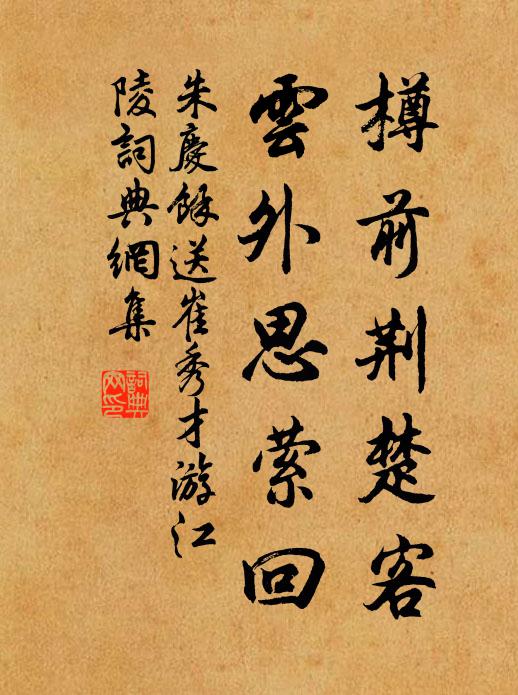 樽前荆楚客
雲外思萦回
朱慶餘送崔秀才游江
陵詞典網集
詞典
网印